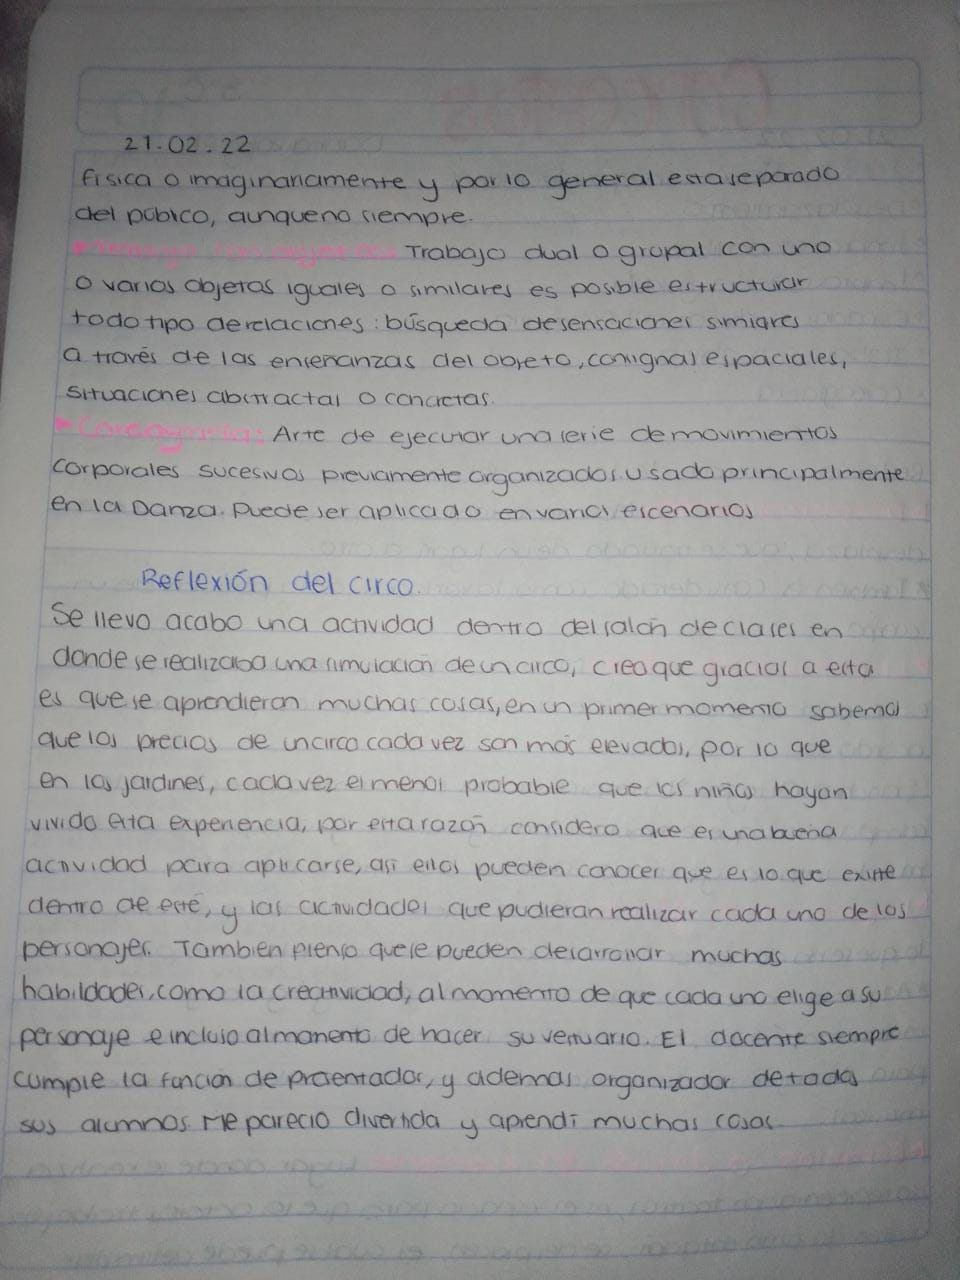 21.02.22
física o imaginariamente y por lo general esta separado
del público, aunque no siempre.
con objetos: Trabajo dual o grupal con uno
o varios objetos iguales o similares es posible estructurar
todo tipo de relaciones: búsqueda de sensaciones simiares
a través de las enseñanzas del objeto, consignas espaciales,
situaciones abstractas o concretas.
Coreografía: Arte de ejecutar una serie de movimientos
corporales sucesivos previamente organizados usado principalmente
en la Danza. Puede ser aplicado en varios escenarios
Reflexión del circo.
Se llevo acabo una actividad dentro del salón de clases en
donde se realizaba una simulación de un circo, creo que gracias a esta
es que se aprendieron muchas cosas, en un primer momento sabemos
que los precios de un circo cada vez son más elevados, por lo que
en los jardines, cada vez es menos probable que los niños hayan
vivido esta experiencia, por esta razón considero que es una buena
actividad para aplicarse, así ellos pueden conocer que es lo que existe
dentro de este, y las actividades que pudieran realizar cada uno de los
personajes. También pienso que se pueden desarrollar muchas
habilidades, como la creatividad, al momento de que cada uno elige a su
personaje e incluso al momento de hacer su vestuario. El docente siempre
cumple la función de presentador, y ademas organizador de todos
sus alumnos. Me pareció divertida y aprendí muchas cosas.